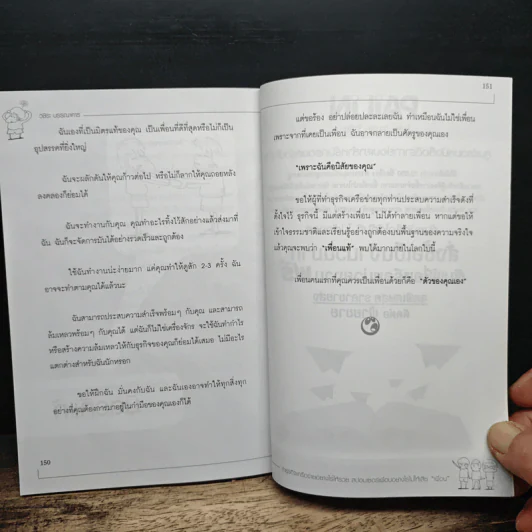 วิชิต
ฉันเองที่เป็นมิตรแท้ของคุณ เป็นเพื่อนที่ดีที่สุดหรือไม่ก็เป็น
อุปสรรคที่ยิ่งใหญ่
ฉันจะผลักดันให้คุณก้าวต่อไป หรือไม่ก็ลากให้คุณถอยหลัง
ลงคลองก็ย่อมได้
ฉันจะทำงานกับคุณ คุณทำอะไรทิ้งไว้สักอย่างแล้วส่งมาที่
ฉัน ฉันก็จะจัดการมันได้อย่างรวดเร็วและถูกต้อง
ใช้ฉันทำงานน่ะง่ายมาก แต่คุณทำให้ดูสัก 2-3 ครั้ง ฉัน
อาจจะทำตามคุณได้แล้วนะ
ฉันสามารถประสบความสำเร็จพร้อมๆ กับคุณ และสามารถ
ล้มเหลวพร้อมๆ กับคุณได้ แต่ฉันก็ไม่ใช่เครื่องจักร จะใช้ฉันทำกำไร
หรือสร้างความล้มเหลวให้กับธุรกิจของคุณก็ย่อมได้เสมอ ไม่มีอะไร
แตกต่างสำหรับฉันนักหรอก
ขอให้ฝึกฉัน มั่นคงกับฉัน และฉันเองอาจทำให้ทุกสิ่งทุก
อย่างที่คุณต้องการมาอยู่ในกำมือของคุณก็ได้
150
151
แต่ขอร้อง อย่าปล่อยปละละเลยฉัน ทำเหมือนฉันไม่ใช่เพื่อน
เพราะจากที่เคยเป็นเพื่อน ฉันอาจกลายเป็นศัตรูของคุณเอง
"เพราะฉันคือนิสัยของคุณ"
ขอให้ผู้ที่ทำธุรกิจเครือข่ายทุกท่านประสบความสำเร็จดังที่
ตั้งใจไว้ ธุรกิจนี้ มีแต่สร้างเพื่อน ไม่ได้ทำลายเพื่อน หากแต่ขอให้
เข้าใจธรรมชาติและเรียนรู้อย่างถูกต้องบนพื้นฐานของความจริงใจ
แล้วคุณจะพบว่า "เพื่อนแท้" พบได้มากมายในโลกใบนี้
เพื่อนคนแรกที่คุณควรจะเป็นเพื่อนด้วยก็คือ "ตัวของคุณเอง"